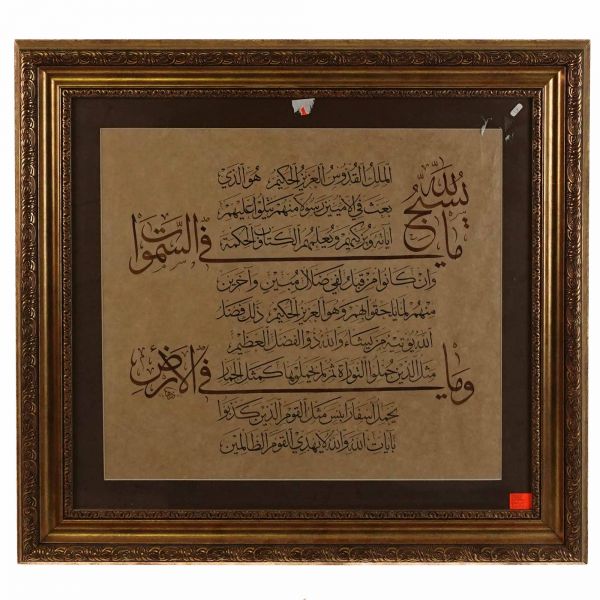 يسبح لله
ما في السموات
وما في الأرض
الملك القدوس العزيز الحكيم هو الذي
بعث في الأميين رسولا منهم يتلو عليهم
آياته ويزكيهم ويعلمهم الكتاب والحكمة
وإن كانوا من قبل لفي ضلال مبين وآخرين
منهم لما يلحقوا بهم وهو العزيز الحكيم ذلك فضل
الله يؤتيه من يشاء والله ذو الفضل العظيم
مثل الذين حملوا التوراة ثم لم يحملوها كمثل الحمار
يحمل أسفارا بئس مثل القوم الذين كذبوا
بآيات الله والله لا يهدي القوم الظالمين